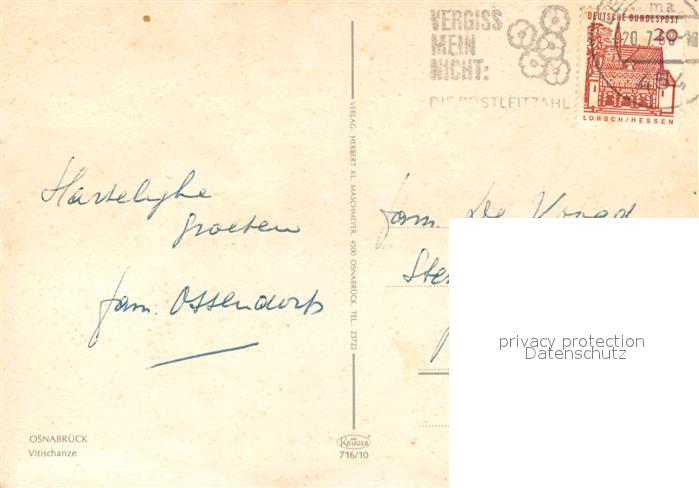 VERGISS
MEIN
NICHT:
DIE POSTLEITZAHL
DEUTSCHE BUNDESPOST
20
LORSCH/HESSEN
20.7.
Hartelijke
groeten
fam. Ossendorf
VERLAG HERBERT KL. MASCHMEYER, 4500 OSNABRÜCK, TEL.: 23722
fam. De
privacy protection
Datenschutz
OSNABRÜCK
Vitischanze
KRÜGER
716/10